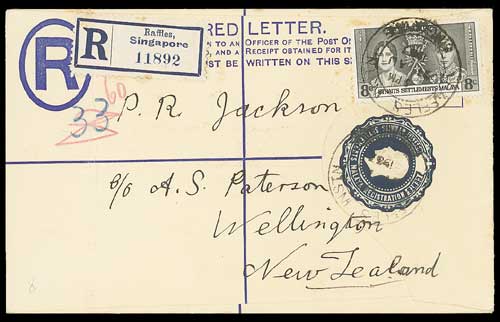 R
REDLETTER.
R
Raffles,
Singapore
11892
TO AN OFFICER OF THE POST OF
AND A RECEIPT OBTAINED FOR IT
MUST BE WRITTEN ON THIS S
8c 8c
STRAITS SETTLEMENTS MALAYA
33
60
P. R. Jackson
c/o A. S. Paterson
Wellington
New Zealand
REGISTRATION